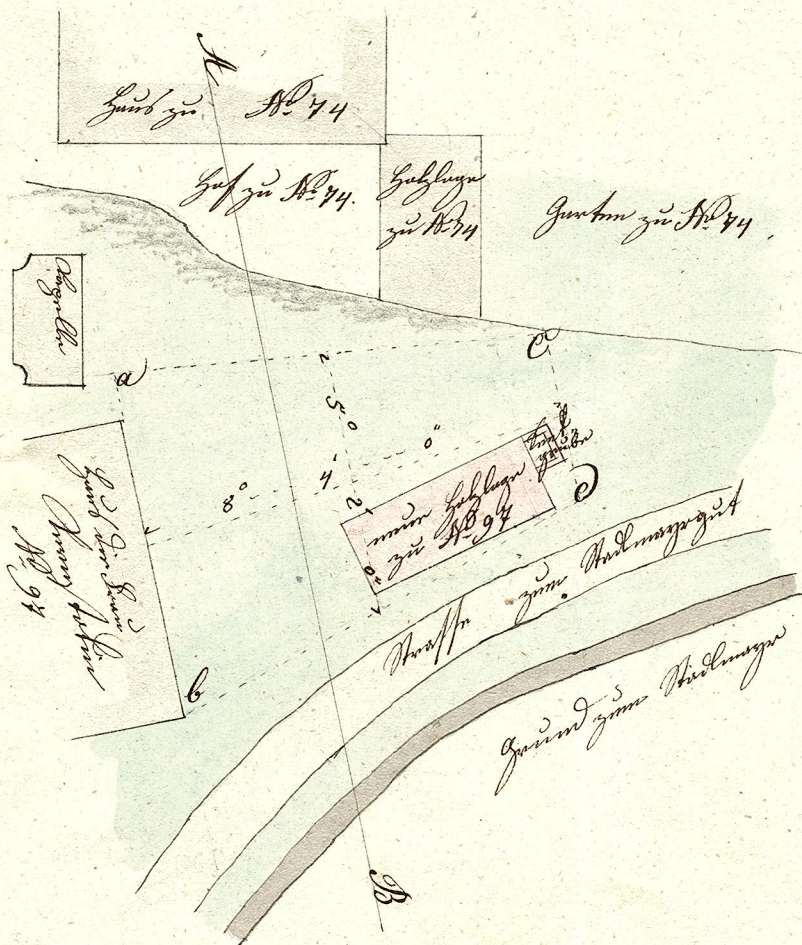 A
Haus zu No 74
Hof zu No 74.
Holzlage
zu No 74
Garten zu No 74.
Capelle
a
C
5°
0"
4'
8°
2'
0"
neue Holzlage
zu No 97
D
Haus der Frau
No 97
b
Strasse zum Stadlmayrgut
Grund zum Stadlmayr
B